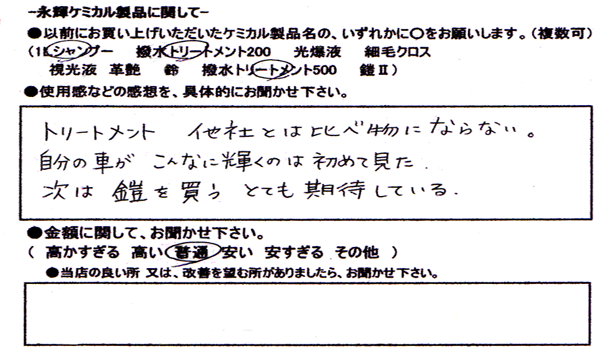 -永輝ケミカル製品に関して-
●以前にお買い上げいただいたケミカル製品名の、いずれかに〇をお願いします。(複数可)
シャンプー 撥水トリートメント200 光爆液 細毛クロス
視光液 革艶 鈴 撥水トリートメント500 鎧Ⅱ)
●使用感などの感想を、具体的にお聞かせ下さい。
トリートメント 他社とは比べ物にならない。
自分の車が こんなに輝くのは初めて見た.
次は 鎧を買う とても期待している.
●金額に関して、お聞かせ下さい。
( 高かすぎる 高い 普通 安い 安すぎる その他 )
●当店の良い所 又は、改善を望む所がありましたら、お聞かせ下さい。